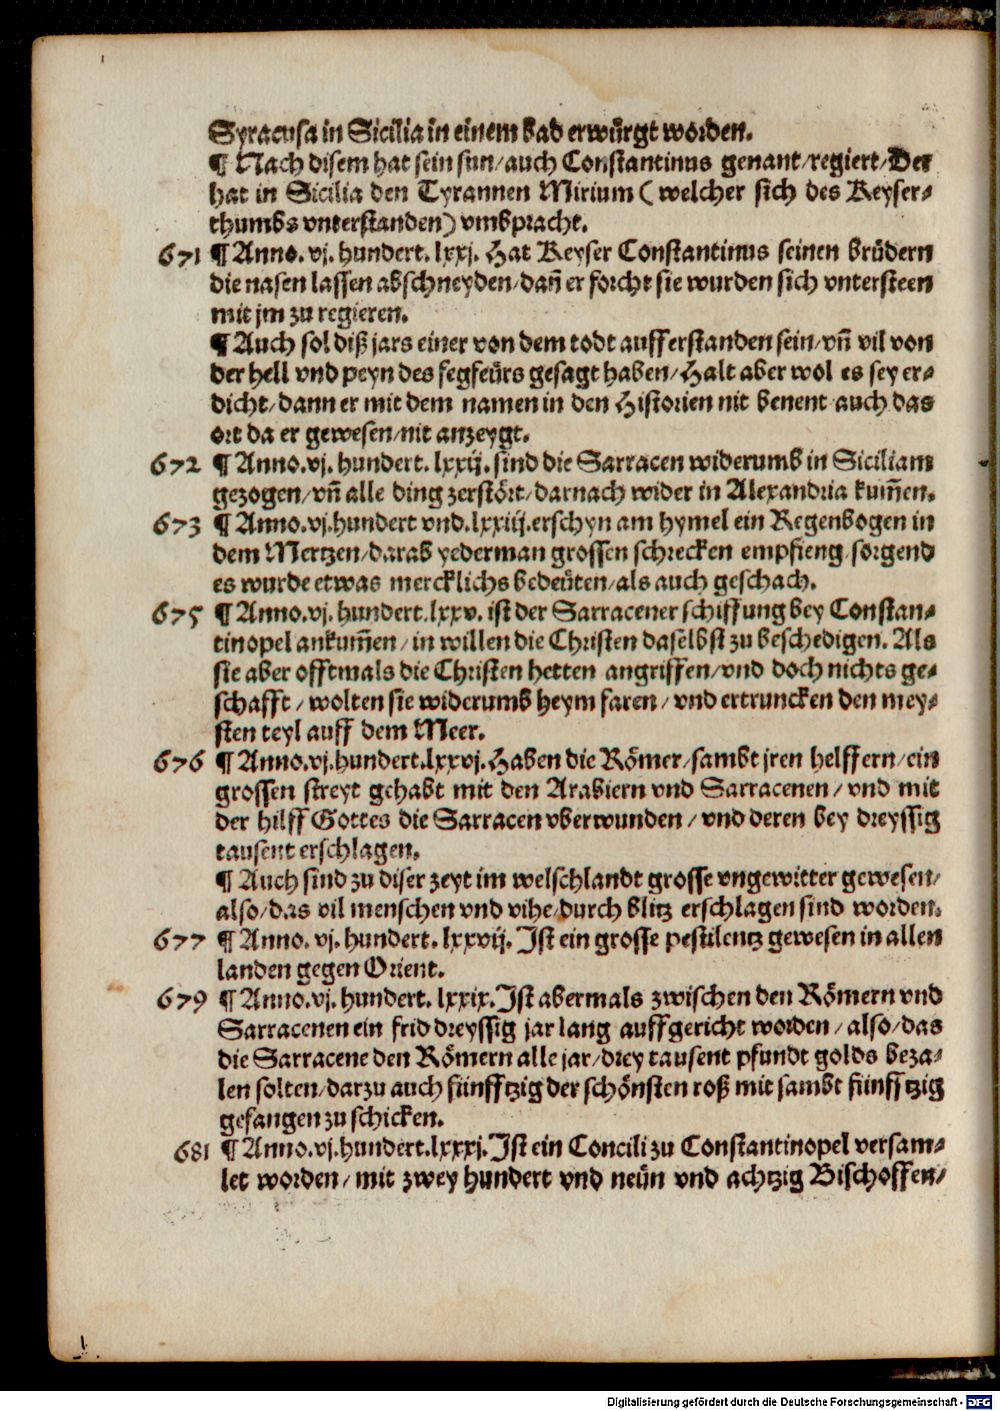 Syracusa in Sicilia in einem bad erwürgt worden.
¶ Nach disem hat sein sun/auch Constantinus genant/regiert/Der
hat in Sicilia den Tyrannen Mirium (welcher sich des Keyser-
thumbs vnterstanden) vmbpracht.
671 ¶ Anno. vj. hundert. lxxj. Hat Keyser Constantinus seinen brüdern
die nasen lassen abschneyden/dañ er forcht sie wurden sich vntersteen
mit jm zu regieren.
¶ Auch sol diß jars einer von dem todt aufferstanden sein/vñ vil von
der hell vnd peyn des fegfeürs gesagt haben/Halt aber wol es sey er-
dicht/dann er mit dem namen in den Historien nit benent auch das
ort da er gewesen/nit anzeygt.
672 ¶ Anno. vj. hundert. lxxij. sind die Sarracen widerumb in Siciliam
gezogen/vñ alle ding zerstört/darnach wider in Alexandria kum̃en.
673 ¶ Anno. vj. hundert vnd. lxxiij. erschyn am hymel ein Regenbogen in
dem Mertzen/darab yederman grossen schrecken empfieng/sorgend
es wurde etwas mercklichs bedeüten/als auch geschach.
675 ¶ Anno. vj. hundert. lxxv. ist der Sarracener schiffung bey Constan-
tinopel ankum̃en/in willen die Christen daselbst zu beschedigen. Als
sie aber offtmals die Christen hetten angriffen/vnd doch nichts ge-
schafft/wolten sie widerumb heym faren/vnd ertruncken den mey-
sten teyl auff dem Meer.
676 ¶ Anno. vj. hundert. lxxvj. Haben die Römer/sambt jren helffern/ein
grossen streyt gehabt mit den Arabiern vnd Sarracenen/vnd mit
der hilff Gottes die Sarracen vberwunden/vnd deren bey dreyssig
tausent erschlagen.
¶ Auch sind zu diser zeyt im welschlandt grosse vngewitter gewesen/
also/das vil menschen vnd vihe/durch blitz erschlagen sind worden.
677 ¶ Anno. vj. hundert. lxxvij. Ist ein grosse pestilentz gewesen in allen
landen gegen Orient.
679 ¶ Anno. vj. hundert. lxxix. Ist abermals zwischen den Römern vnd
Sarracenen ein frid dreyssig jar lang auffgericht worden/also/das
die Sarracene den Römern alle jar/drey tausent pfundt golds beza-
len solten/darzu auch fünfftzig der schönsten roß mit sambt fünfftzig
gefangen zu schicken.
681 ¶ Anno. vj. hundert. lxxxj. Ist ein Concili zu Constantinopel versam-
let worden/mit zwey hundert vnd neün vnd achtzig Bischoffen/
Digitalisierung gefördert durch die Deutsche Forschungsgemeinschaft - DFG